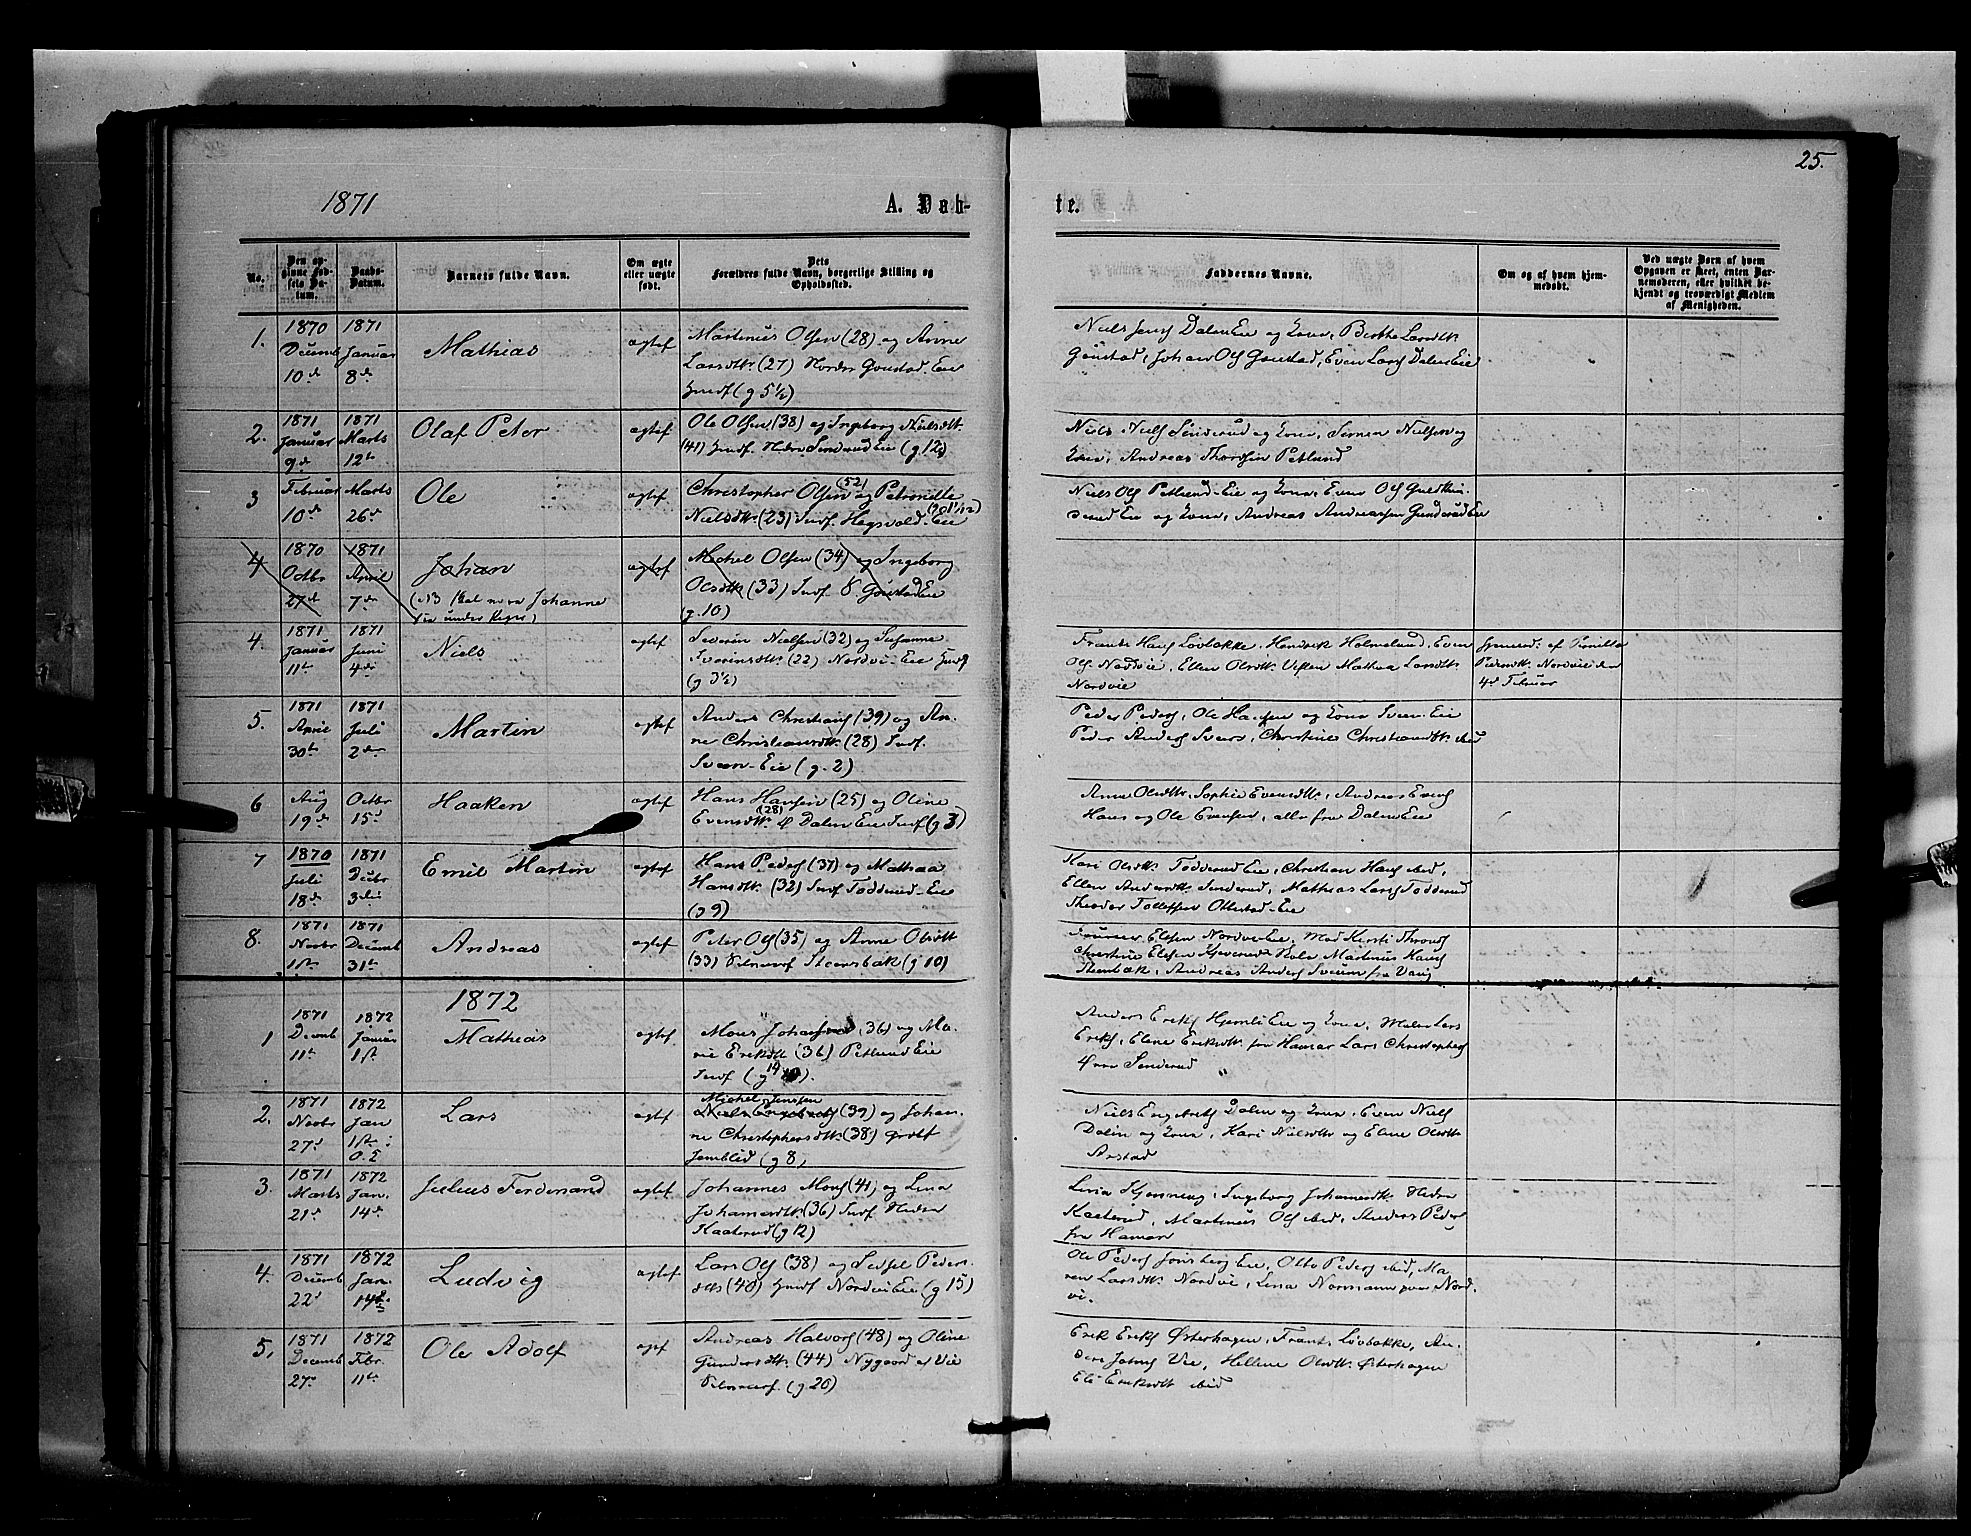 25.
1871
A. Døb-
te.
No.
Den op-
givne Fød-
sels Da-
tum.
Daabs-
Datum.
Barnets fulde Navn.
Om ægte
eller uægte
født.
Dets
Forældres fulde Navn, borgerlige Stilling og
Opholdssted.
Faddernes Navne.
Om og af hvem hjem-
medøbt.
Ved uægte Børn af hvem
Opgaven er skeet, enten Bar-
nemoderen, eller hvilket be-
kjendt og troværdigt Medlem
af Menigheden.
1.
1870
Decemb
10de
1871
Januar
8de
Mathias
ægtef
Martinus Olsen (28) og Anne
Larsdtr. (27) Nordre Gaustad Eie
Indf (g 5½)
Niels Jens Dalen Eie og Kone, Berthe Larsdtr.
Gaustad, Johan Ols Gaustad, Even Lars Dalen Eie
2.
1871
Januar
9de
1871
Marts
12te
Olaf Peter
ægtef
Ole Olsen (38) og Ingeborg Nielsdtr.
(41) Indf. Nedre Sønderud Eie (g 12)
Niels Niels Sønderud og Kone, Simen Nielsen og
Kone, Andreas Thorsen Petlund
3
Februar
10de
Marts
26de
Ole
ægtef
Christopher Olsen (52) og Petronelle
Nielsdtr. (23) Indf. Hegsvold-Eie
Niels Ols Petlund-Eie og Kone, Even Ols
Eie og Kone, Andreas Andreassen Gunderud Eie
4
1870
Octbr
27de
1871
April
7de
Johan
(NB skal være Johanne
se under Piger)
ægtef
Michel Olsen (34) og Ingeborg
Olsdtr. (33) Indf. Gaustad Eie
(g 10)
4.
1871
Januar
11te
1871
Juni
4de
Niels
ægtef
Severin Nielsen (32) og Susanne
Iverinsdtr. (22) Nordvi-Eie Indf
(g 3½)
Frants Hans Løvbakke, Hendrik Holmlund, Even
Ols Nordvie, Ellen Olsdtr. Mathea Larsdtr.
Nordvie
hjemmed. af Pernille
Pedersdtr. Nordvie den
4de Februar
5.
1871
April
30te
1871
Juli
2den
Martin
ægtef
Anders Christians (39) og An-
ne Christiansdtr. (28) Indf.
Sveen-Eie (g. 2)
Peder Peders, Ole Hansen og Kone Sveen-Eie
Peder Anders Sveen, Christine Christiansdtr. ibid
6
Aug
19de
Octbr
15de
Haaken
ægtef
Hans Hansen (25) og Oline
Evensdtr. (28) Dalen Eie Indf (g 3)
Anne Olsdtr. Sophie Evensdtr. Andreas Evens
Hans og Ole Evensen, alle fra Dalen Eie
7
1870
Juli
18de
1871
Decbr
3die
Emil Martin
ægtef
Hans Peders (37) og Mathea
Hansdtr. (32) Indf Toddrud-Eie
(g 9)
Kari Olsdtr. Todderud Eie, Christian Hans ibid,
Ellen Andersdtr. Sønderud, Mathias Lars Todderud
Theodor Tollefsen Ottestad-Eie
8.
1871
Novbr
1ste
1871
Decemb
31te
Andreas
ægtef
Peter Ols (35) og Anne Olsdtr
(33) Steensbæk (g 10)
Elesen Nordvi-Eie, Mad Kersti Throns
Christine Elesen Kole Martinus Hans
Stenbæk, Andreas Anders Sveum fra Vang
1872
1
1871
Decemb
11te
1872
Januar
1ste
Mathias
ægtef
Mons Johansen (36) og Ma-
rie Eriksdtr (36) Petlund Eie
Indf (g 14).
Anders Eriks Hjemli Eie og Kone, Maler Lars
Eriks, Elene Eriksdtr. fra Hamar Lars Christophers
Sønderud
2.
1871
Novbr
27de
1872
Jan
1ste
Lars
ægtef
Michel Jenssen
Niels Engebrets (39) og Johan-
ne Christophersdtr. (38)
Jemblid (g 8)
Niels Engebrets Dalen og Kone, Even Niels
Dalen og Kone, Kari Nielsdtr og Elene Olsdtr.
Arstad
3.
1871
Marts
21de
1872
Jan.
14de
Julius Ferdinand
ægtef
Johannes Mons (41) og Lena
Johannesdtr. (36) Indf. Nedre
Kaaterud (g 12)
Lina Skjønning, Ingeborg Johannesdtr. Nedre
Kaaterud, Martinus Ols ibid, Anders Peders
fra Hamar
4.
1871
Decemb
22de
1872
Jan.
14de
Ludvig
ægtef
Lars Ols (38) og Sidsel Peders-
dtr (40) Indf Nordvi Eie (g 15)
Ole Peders Jønsberg Eie, Otto Peders ibid, Ma-
ren Larsdtr. Nordvie, Lina Normann paa Nord-
vi.
5.
1871
Decemb
27de
1872
Febr.
11te
Ole Adolf
ægtef
Andreas Halvors (48) og Oline
Gundersdtr. (44) Nygaard af Vie
(g 20)
Erik Eriks Østerhagen, Frants Løvbakke, An-
ders Johns Vie, Hellene Olsdtr. Østerhagen
Eli Eriksdtr ibid